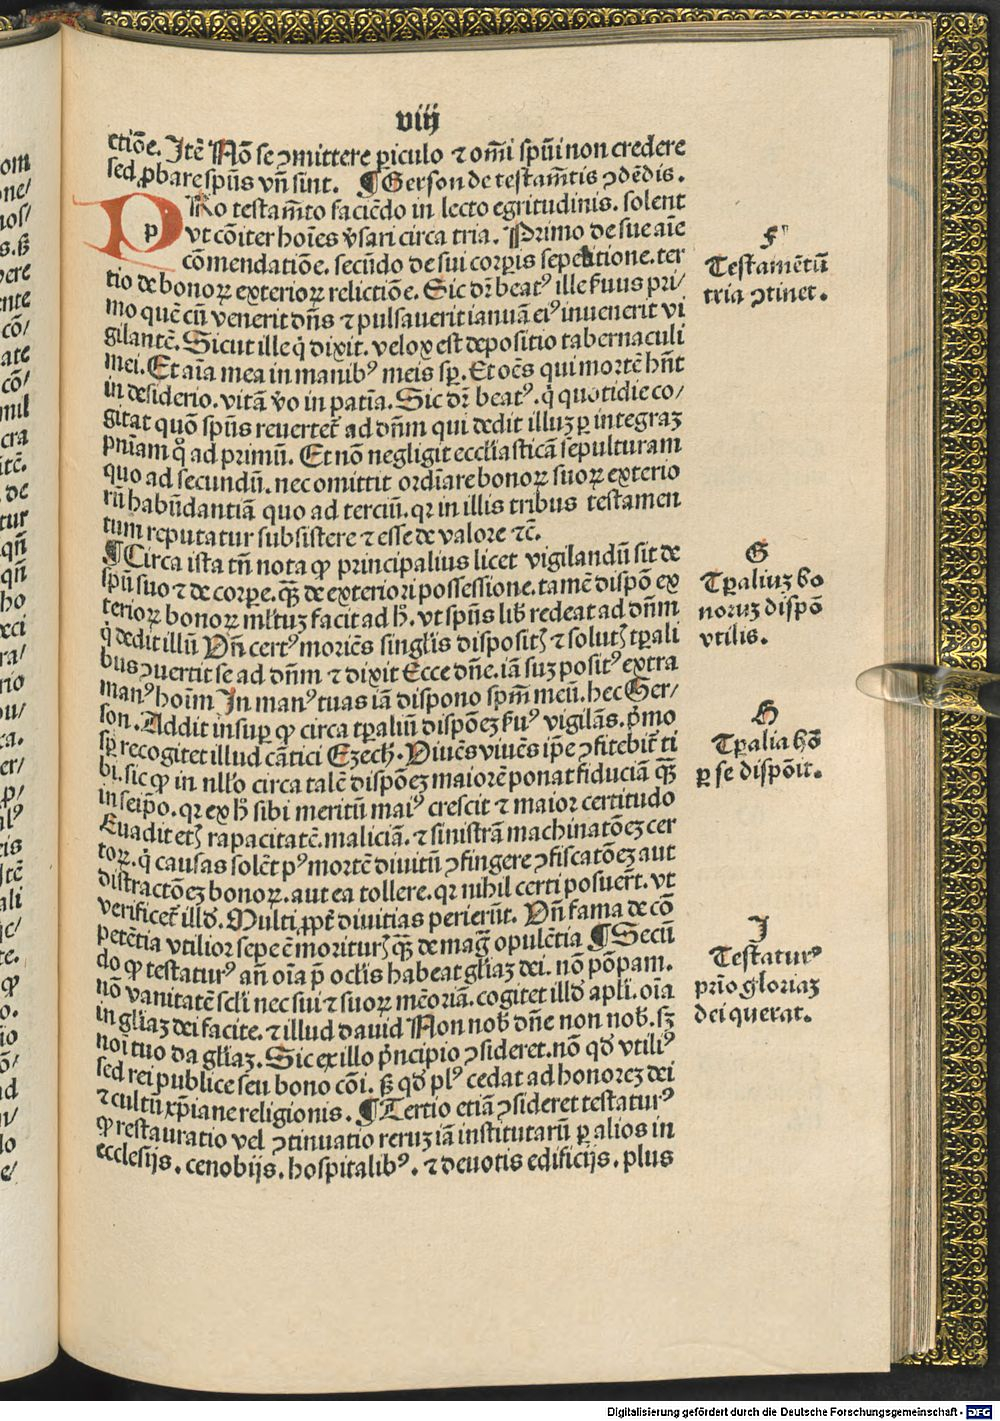 viij
ctiōe. Itē Nō se ɔmittere ꝑiculo ⁊ om̄i spūi non credere
sed ꝓbare spūs vn̄ sint. ¶ Gerson de testam̄tis ɔdēdis.
PRo testam̄to faciēdo in lecto egritudinis. solent
vt cōiter hoīes v̄sari circa tria. Primo de sue aīe
cōmendatiōe. secūdo de sui corꝑis sepeltione. ter
tio de bonoꝝ exterioꝝ relictiōe. Sic dr̄ beatꝰ ille ẜuus pri/
mo quē cū venerit dn̄s ⁊ pulsauerit ianuā eiꝰ inuenerit vi
gilantē. Sicut ille q̇ dixit. velox est depositio tabernaculi
mei. Et aīa mea in manibꝰ meis sꝑ. Et oēs qui mortē hn̄t
in desiderio. vitā v̄o in patīa. Sic dr̄ beatꝰ. q̇ quotidie co/
gitat quō spūs reuertet̄ ad dn̄m qui dedit illuꝫ ꝑ integraꝫ
pn̄iam qͦ ad primū. Et nō negligit eccl̄iasticā sepulturam
quo ad secundū. nec omittit ordīare bonoꝝ suoꝝ exterio
rū habūdantiā quo ad terciū. qꝛ in illis tribus testamen
tum reputatur subsistere ⁊ esse de valore ⁊c̄.
¶ Circa ista tn̄ nota ꝙ principalius licet vigilandū sit de
spū suo ⁊ de corpe. qͣꝫ de exteriori possessione. tamē dispō ex
terioꝝ bonoꝝ ml̄tuꝫ facit ad ħ. vt spūs lib̄ redeat ad dn̄m
q̇ dedit illū Vn̄ certꝰ moriēs singl̄is dispositꝭ ⁊ solutꝭ tꝑali
bus ɔuertit se ad dn̄m ⁊ dixit Ecce dn̄e. iā suꝫ positꝰ extra
manꝰ hoīm In manꝰ tuas iā dispono spm̄ meū. hec Ger/
son. Addit insuꝑ ꝙ circa tꝑaliū dispōeꝫ ẜuꝰ vigilās. p̄mo
sꝑ recogitet illud cātici Ezech. Viuēs viuēs ip̄e ɔfitebit̄ ti
bi. sic ꝙ in nll̄o circa talē dispōeꝫ maiorē ponat fiduciā qͣꝫ
in seip̄o. qꝛ ex ħ sibi meritū maiꝰ crescit ⁊ maior certitudo
Euadit etꝭ rapacitatē. maliciā. ⁊ sinistrā machinatōeꝫ cer
toꝝ. q̇ causas solēt pꝰ mortē diuitū ɔfingere ɔfiscatōeꝫ aut
distractōeꝫ bonoꝝ. aut ea tollere. qꝛ nihil certi posuer̄t. vt
verificet̄ ill̄d. Multi ꝓpt̄ diuitias perierūt. Vn̄ fama de cō
petētia vtilior sepe ē moriturꝭ qͣꝫ de maḡ opulētia ¶ Secū
do ꝙ testaturꝰ an̄ oīa p̄ ocl̄is habeat gl̄iaꝫ dei. nō pōpam.
nō vanitatē scl̄i nec sui ⁊ suoꝝ mēoriā. cogitet ill̄d apl̄i. oīa
in gl̄iaꝫ dei facite. ⁊ illud dauid Non nob̄ dn̄e non nob̄. sꝫ
noī tuo da gl̄iaꝫ. Sic ex illo p̄ncipio ɔsideret. nō qḋ vtiliꝰ
sed rei publice seu bono cōi. ß qḋ plꝰ cedat ad honoreꝫ dei
⁊ cultū xp̄iane religionis. ¶ Tertio etiā ɔsideret testaturꝰ
ꝙ restauratio vel ɔtinuatio reruꝫ iā institutarū ꝑ alios in
ecclesijs. cenobijs. hospitalibꝰ. ⁊ deuotis edificijs. plus
F
Testamētū
tria ɔtinet.
G
Tꝑaliuꝫ bo
noruꝫ dispō
vtilis.
H
Tꝑalia hō
ꝑ se dispōit.
I
Testaturꝰ
prīo gloriaꝫ
dei querat.
Digitalisierung gefördert durch die Deutsche Forschungsgemeinschaft - DFG